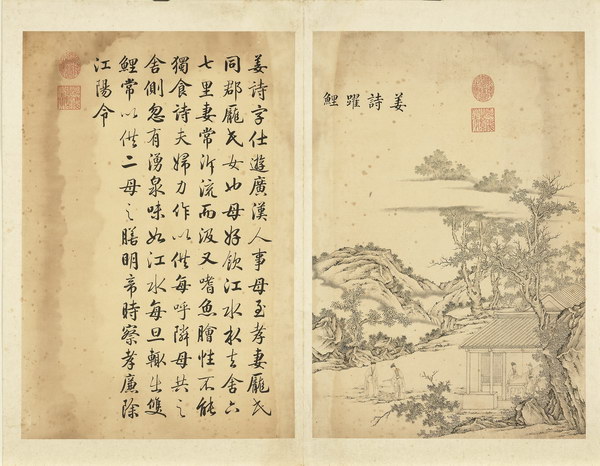 姜詩躍鯉
姜詩字仕遊廣漢人事母至孝妻龐氏
同郡龐氏女也母好飲江水水去舍六
七里妻常泝流而汲又嗜魚膾性不能
獨食詩夫婦力作以供每呼隣母共之
舍側忽有湧泉味如江水每旦輒出雙
鯉常以供二母之膳明帝時察孝廉除
江陽令